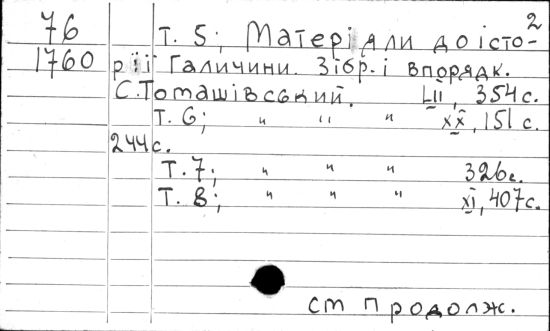 2
76 Т. 5; Матеріяли до істо-
1760 рії Галичини. Зібр. і впорядк.
С. Томашівський. LII, 354 с.
Т. 6; " " " XX, 151 с.
244 с.
Т. 7; " " " 326 с.
Т. 8; " " " XI, 407 с.
см продолж.